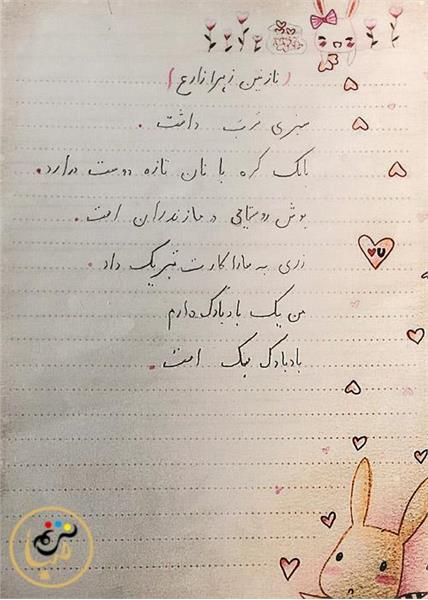 (نازنین زهرا زارع)
داشت.
کره با نان تازه دوست دارد.
بوش روستایی در مازندران است.
زری به سارا کارت تبریک داد.
من یک بادبادک دارم
بادبادک سبک است.
U